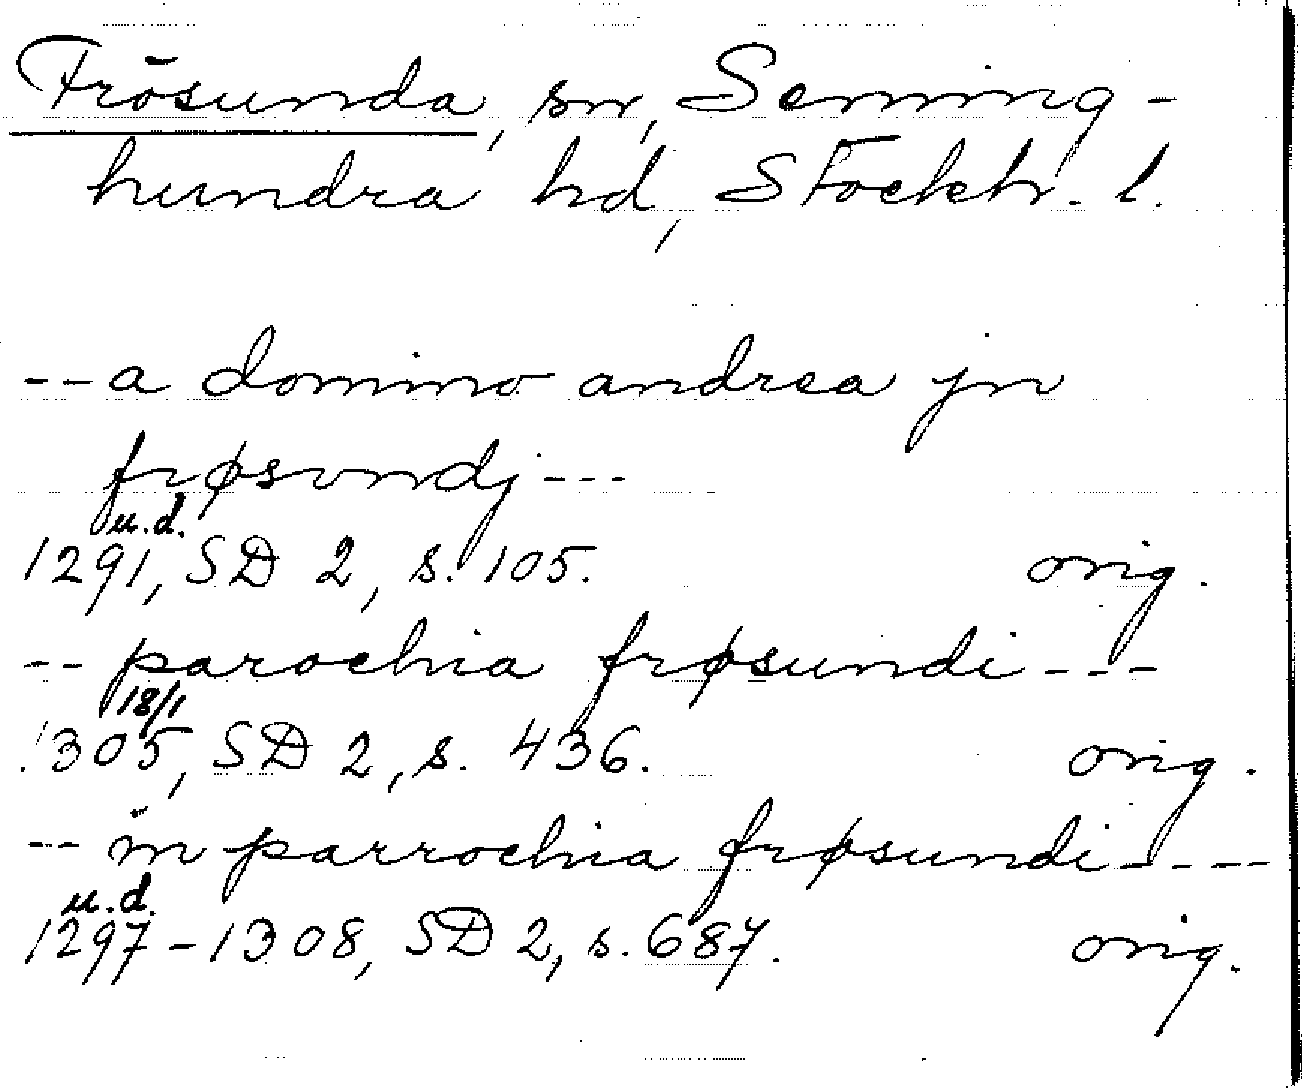 Frösunda, sn, Seming-
hundra hd, Stockh. l.
-- a domino andrea jn
frøsvndj ---
u.d.
1291, SD 2, s. 105. orig.
-- parochia frøsundi ---
18/1
1305, SD 2, s. 436. orig.
-- in parrochia frøsundi ----
u.d.
1297-1308, SD 2, s. 687. orig.